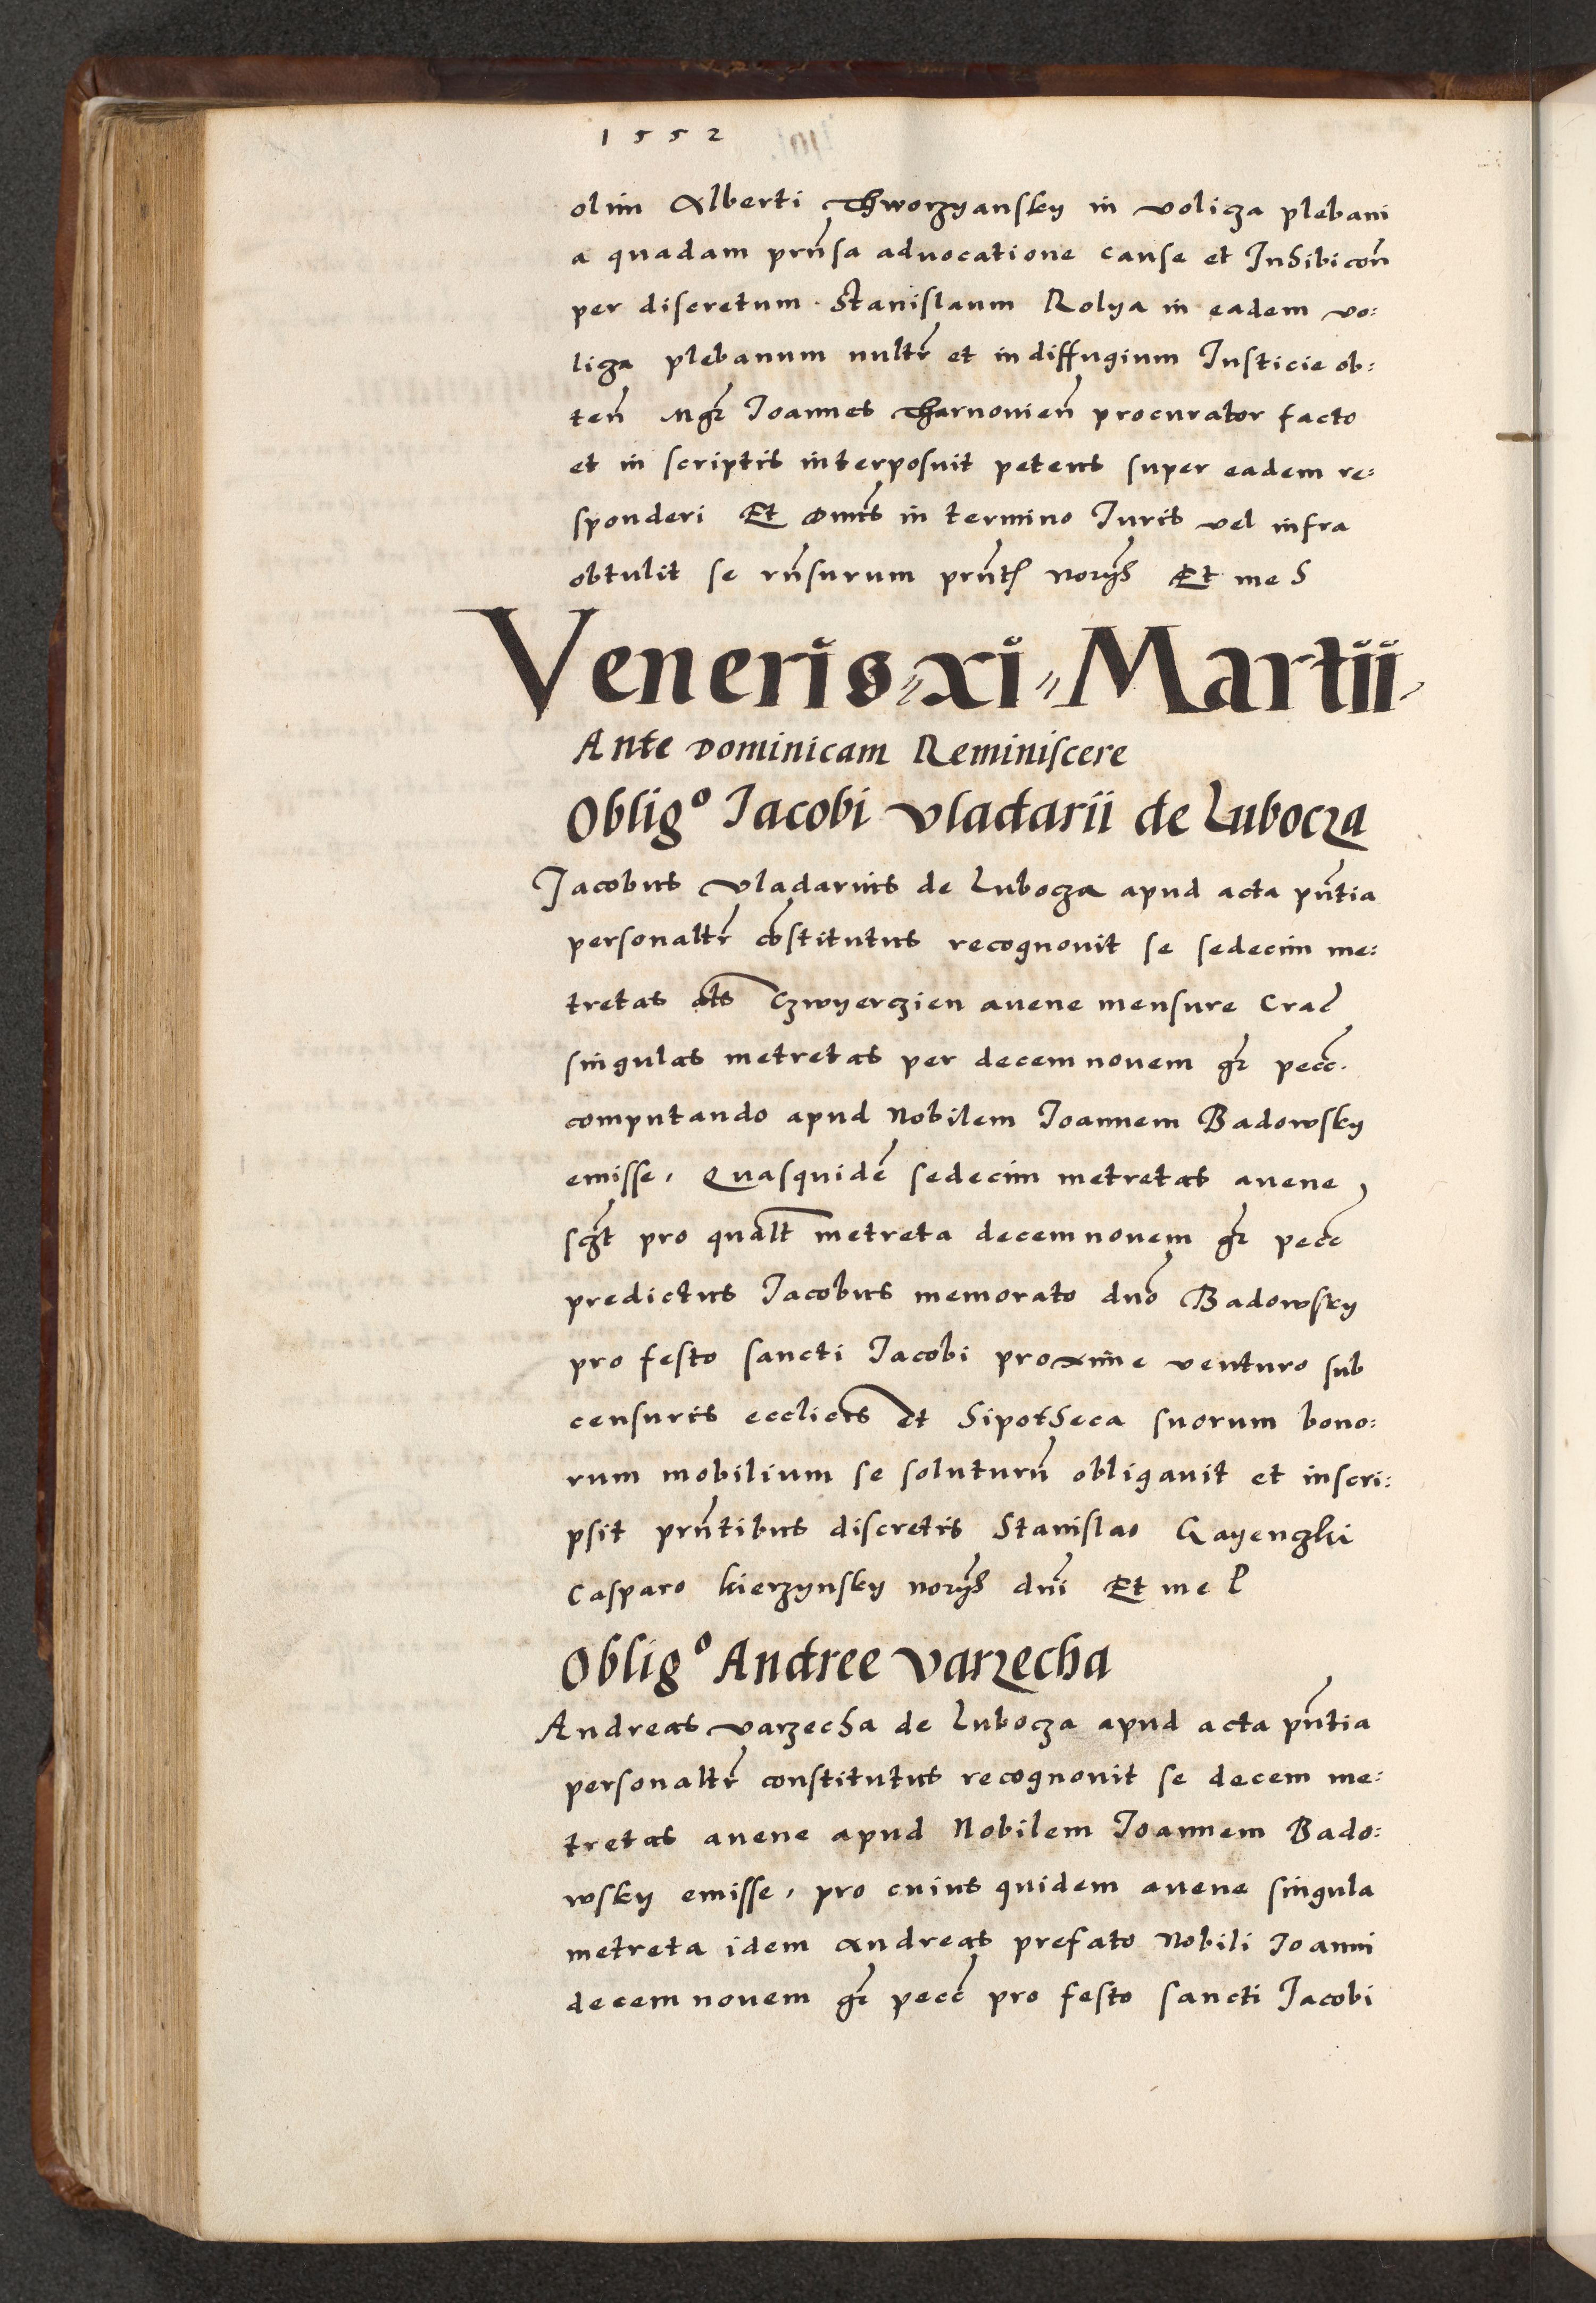 1552
olim Alberti Thworzyansky in Volicza plebani
a quadam prn̄sa aduocatione cause et Inhibicōn
per discretum Stanislaum Rolya in eadem Vo:
licza plebanum nullr̄ et in diffugium Iusticie ob:
teñ Mgr̄ Ioannes Tharnovieñ procurator facto
et in scriptis interposuit petens super eadem re:
sponderi Et om̄s in termino Iuris vel infra
obtulit se rn̄surum prn̄t noryīs Et me S
Veneris xi Martii
Ante Dominicam Reminiscere
Obligº Iacobi Vladarii de Lubocza
Jacobus Vladarius de Lubocza apud acta pn̄tia
personaltr̄ cōstitutus recognouit se sedecim me:
tretas als Czwyerczien auene mensure Crac̄
singulas metretas per decemnouem gr̄ pecc̄.
computando apud Nobilem Ioannem Badowsky
emisse, Quasquidē sedecim metretas auene
sc̄t pro qualt metreta decemnouem gr̄ pecc̄
predictus Iacobus memorato dn̄o Badowsky
pro festo sancti Iacobi proxime venturo sub
censuris ecclicis et hipotheca suorum bono:
rum mobilium se soluturū obligauit et inscri:
psit prn̄tibus discretis Stanislao Gayenczki
Casparo Kierzynsky noryīs dn̄i Et me P
Obligº Andree Varzecha
Andreas Varzecha de Lubocza apud acta pn̄tia
personaltr̄ constitutus recognouit se decem me:
tretas auene apud Nobilem Ioannem Bado:
wsky emisse, pro cuius quidem auene singula
metreta idem Andreas prefato Nobili Ioanni
decemnouem gr̄ pecc̄ pro festo sancti Iacobi